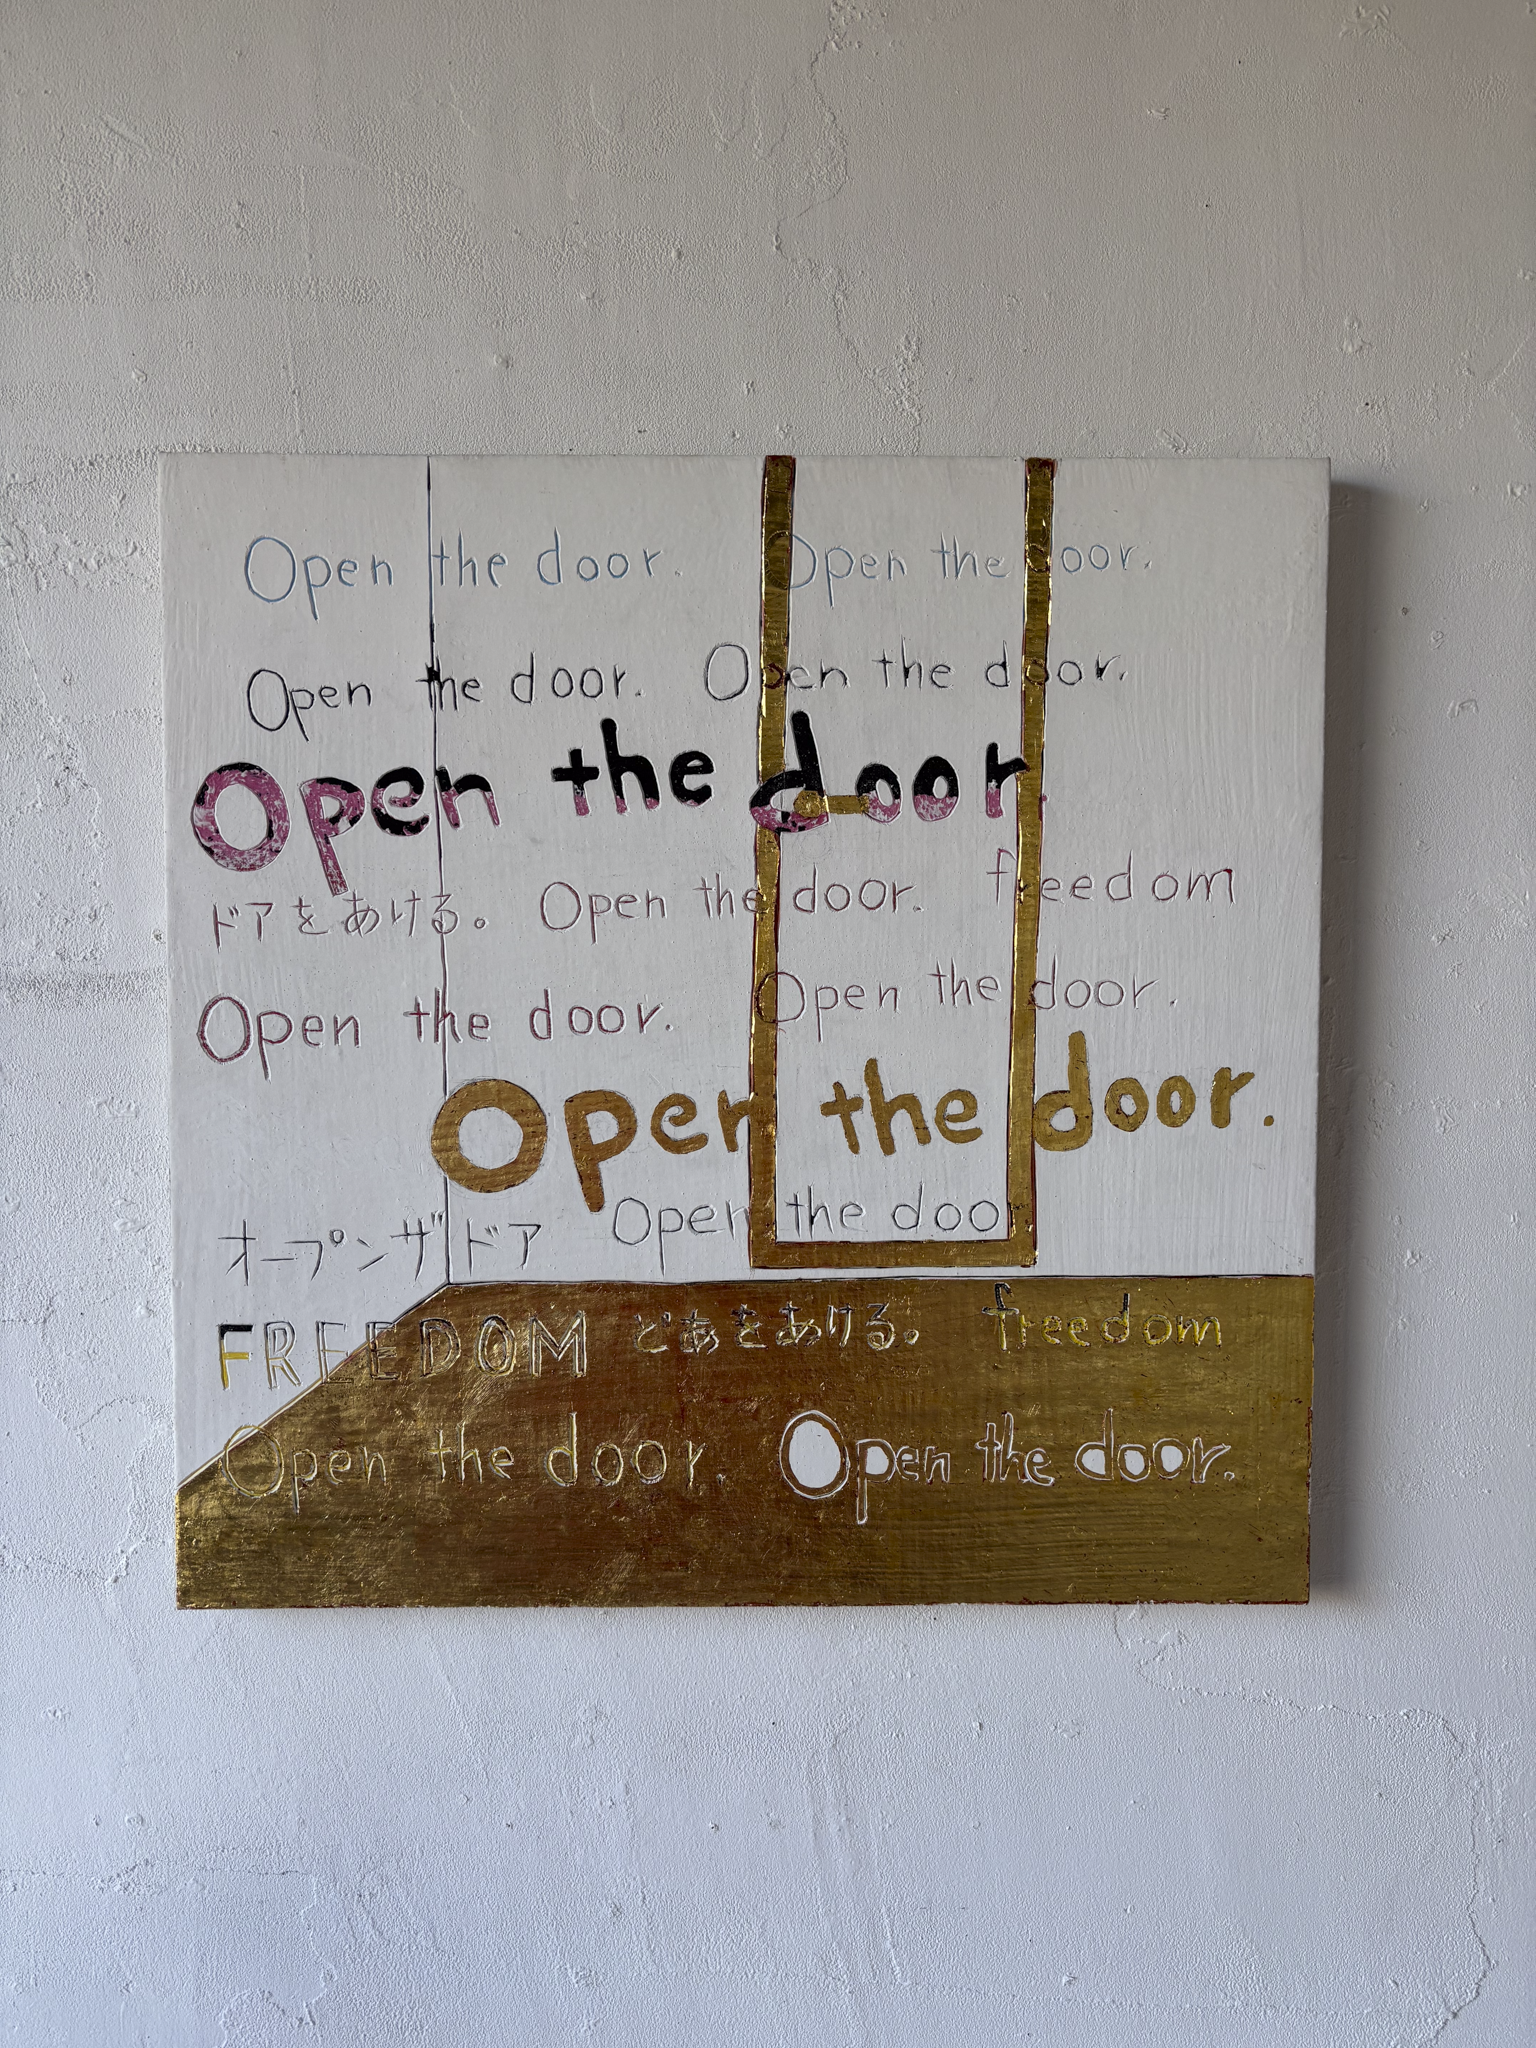 Open the door. Open the door.
Open the door. Open the door.
Open the door.
ドアをあける。 Open the door. freedom
Open the door. Open the door.
Open the door.
オープンザドア Open the door
FREEDOM どあをあける。 freedom
Open the door. Open the door.